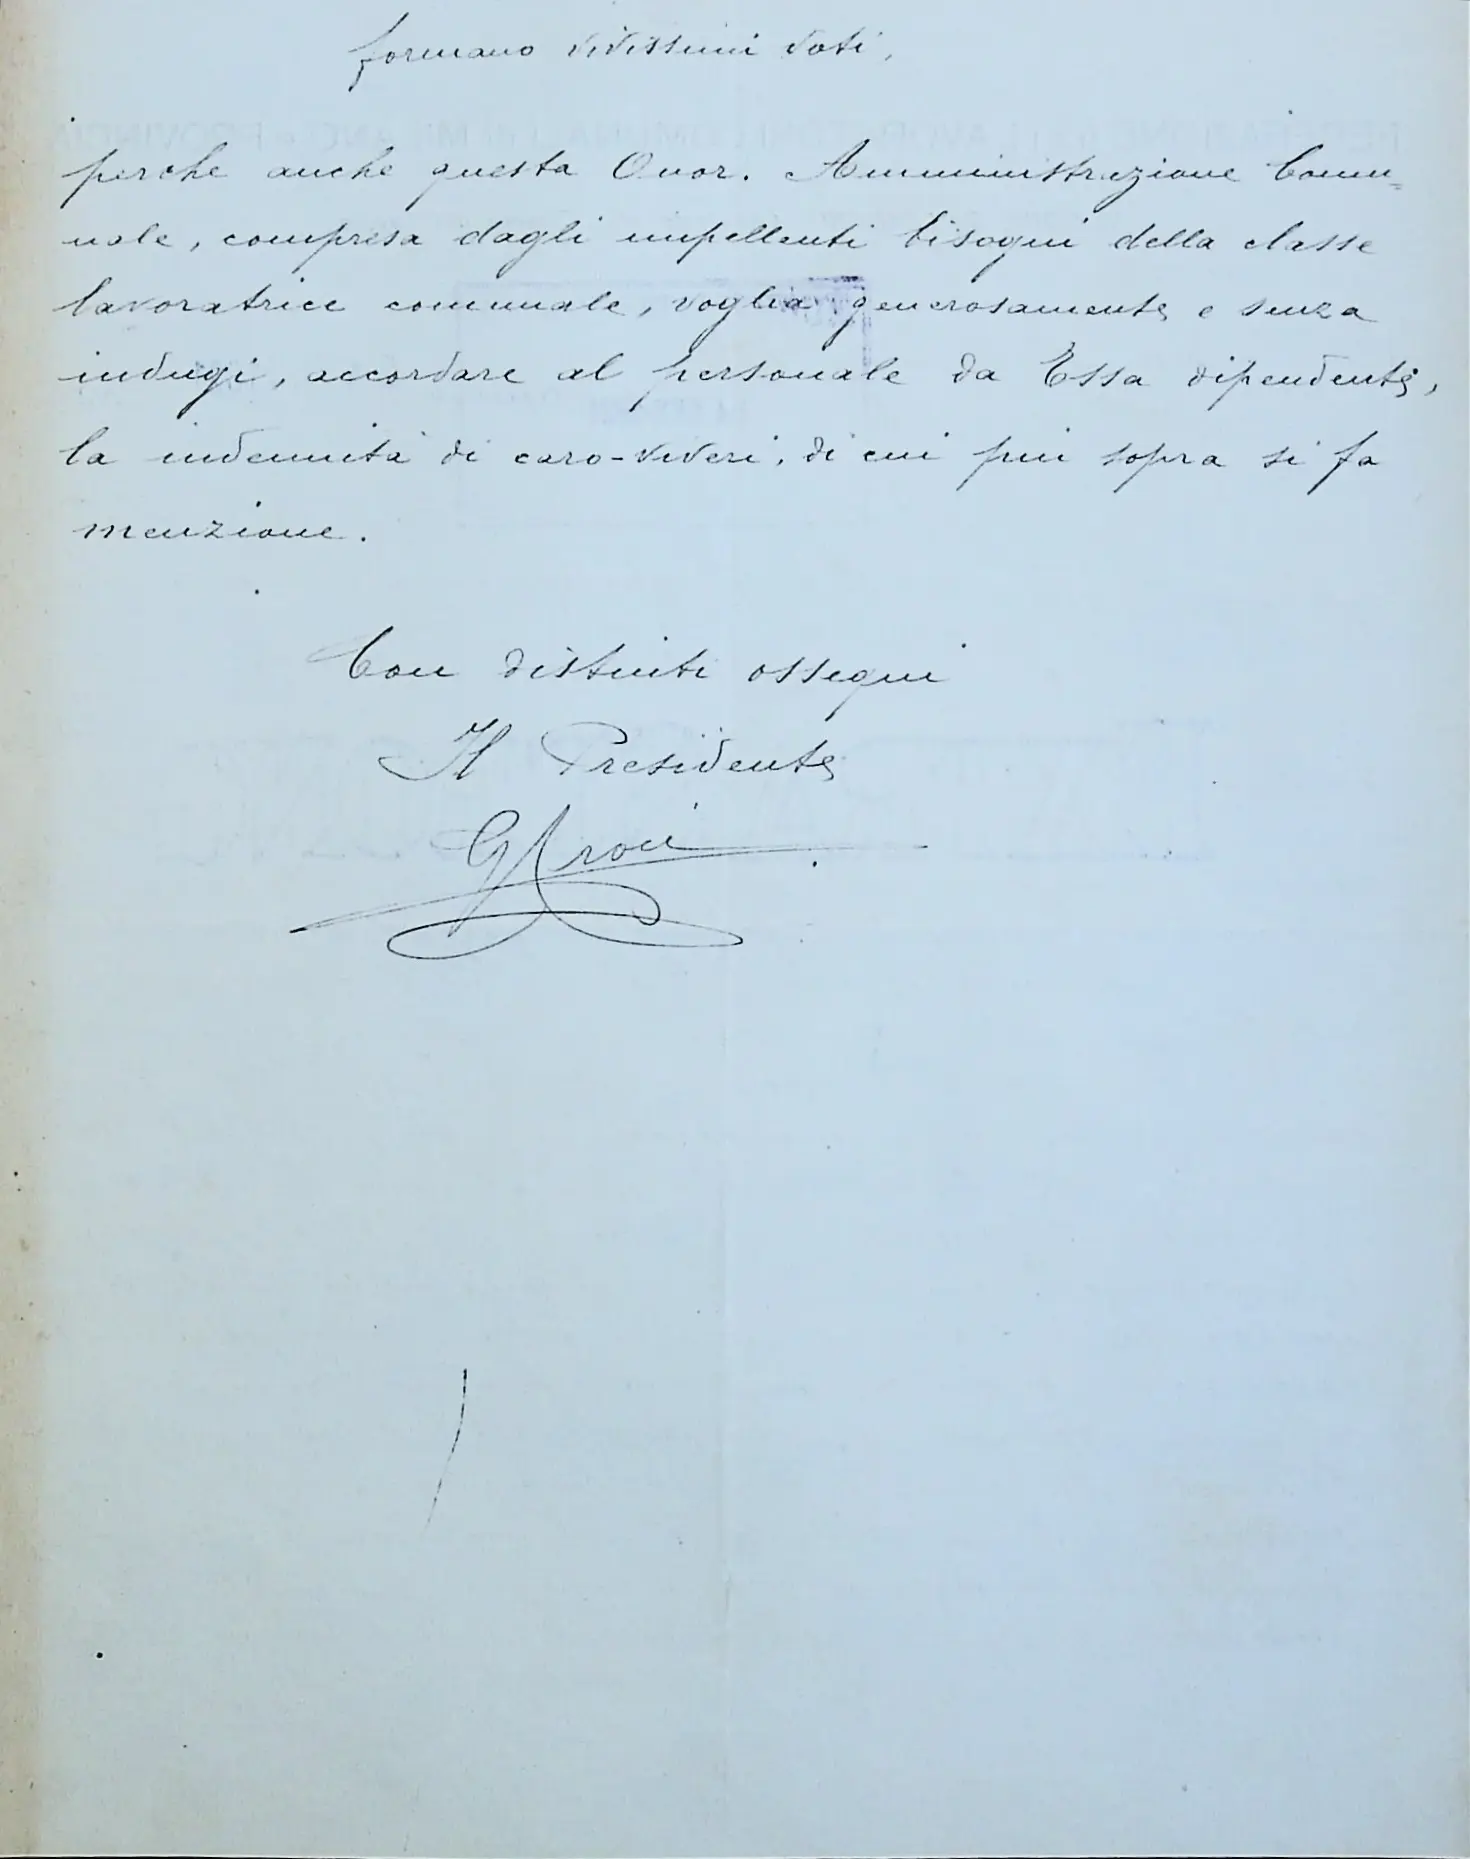 formano vivissimi voti,
perche anche questa Onor. Amministrazione Comu=
nale, compresa dagli impellenti bisogni della classe
lavoratrice comunale, voglia generosamente e senza
indugi, accordare al personale da Essa dipendente,
la indennità di caro-viveri, di cui più sopra si fa
menzione.
Con distinti ossequi
Il Presidente